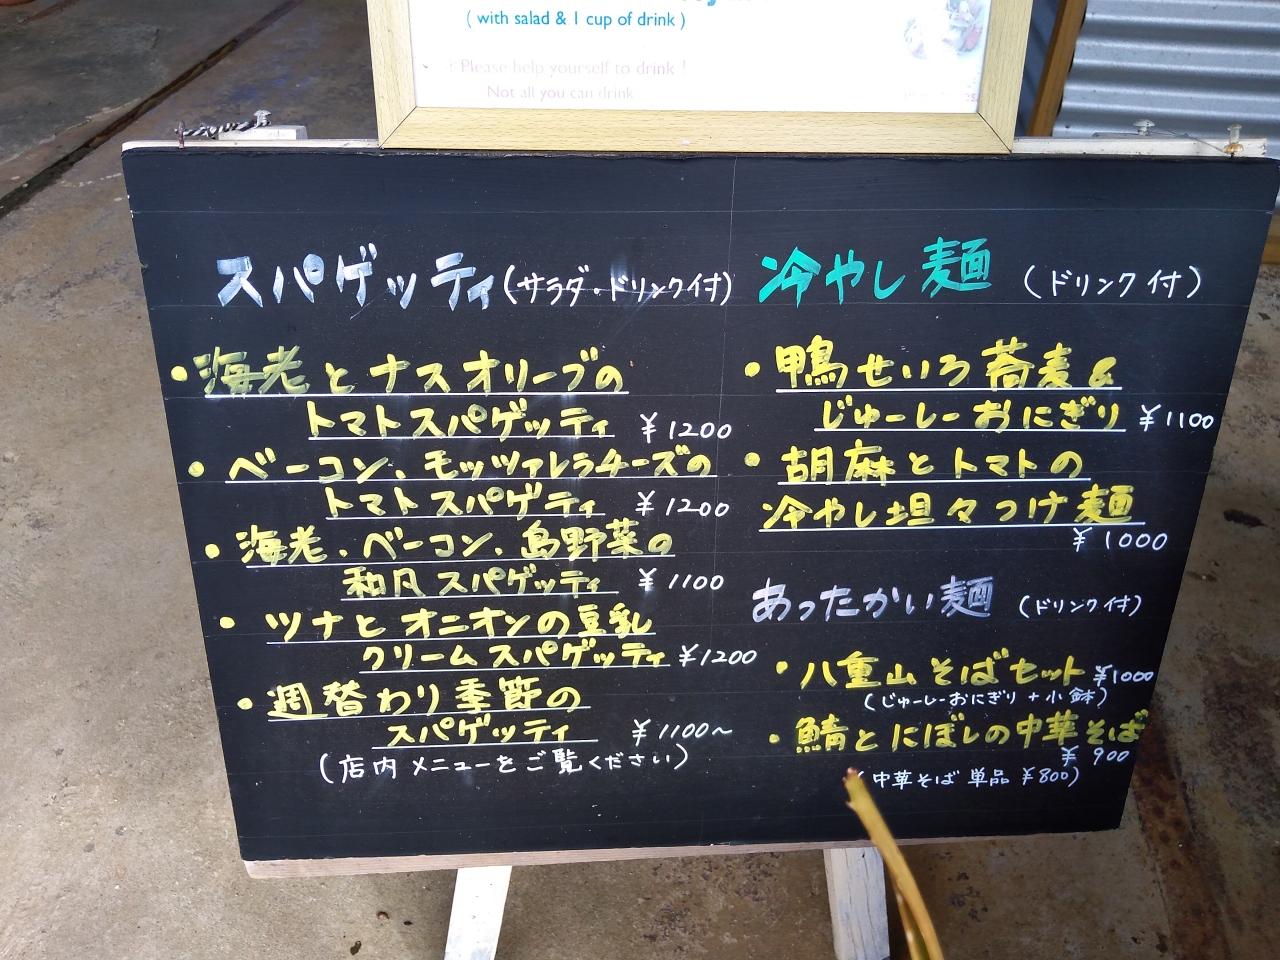 ( with salad & 1 cup of drink )
Please help yourself to drink !
Not all you can drink
スパゲッティ(サラダ・ドリンク付)
・海老とナスオリーブの
トマトスパゲッティ ¥1200
・ベーコン、モッツァレラチーズの
トマトスパゲティ ¥1200
・海老、ベーコン、島野菜の
和風スパゲッティ ¥1100
・ツナとオニオンの豆乳
クリームスパゲッティ ¥1200
・週替わり季節の
スパゲッティ ¥1100〜
(店内メニューをご覧ください)
冷やし麺 (ドリンク付)
・鴨せいろ蕎麦&
じゅーしーおにぎり ¥1100
・胡麻とトマトの
冷やし坦々つけ麺
¥1000
あったかい麺 (ドリンク付)
・八重山そばセット ¥1000
(じゅーしーおにぎり+小鉢)
・鯖とにぼしの中華そば
¥900
(中華そば単品 ¥800)